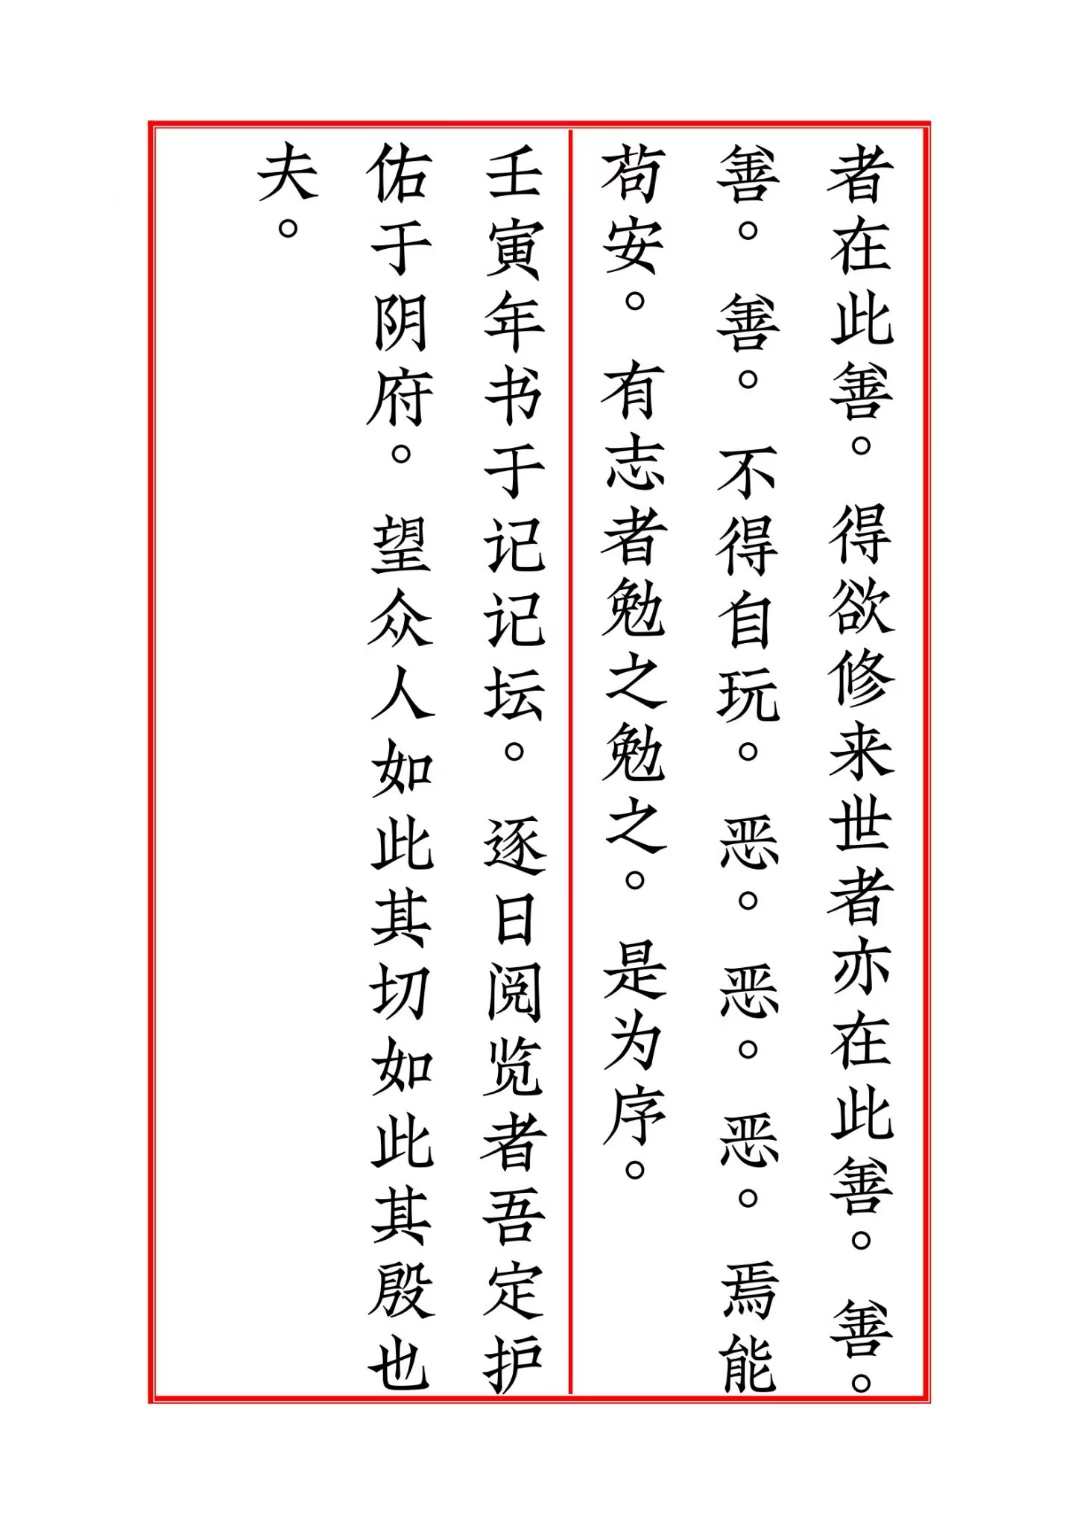 者在此善。得欲修来世者亦在此善。善。
善。善。不得自玩。恶。恶。恶。焉能
苟安。有志者勉之勉之。是为序。
壬寅年书于记记坛。逐日阅览者吾定护
佑于阴府。望众人如此其切如此其殷也
夫。